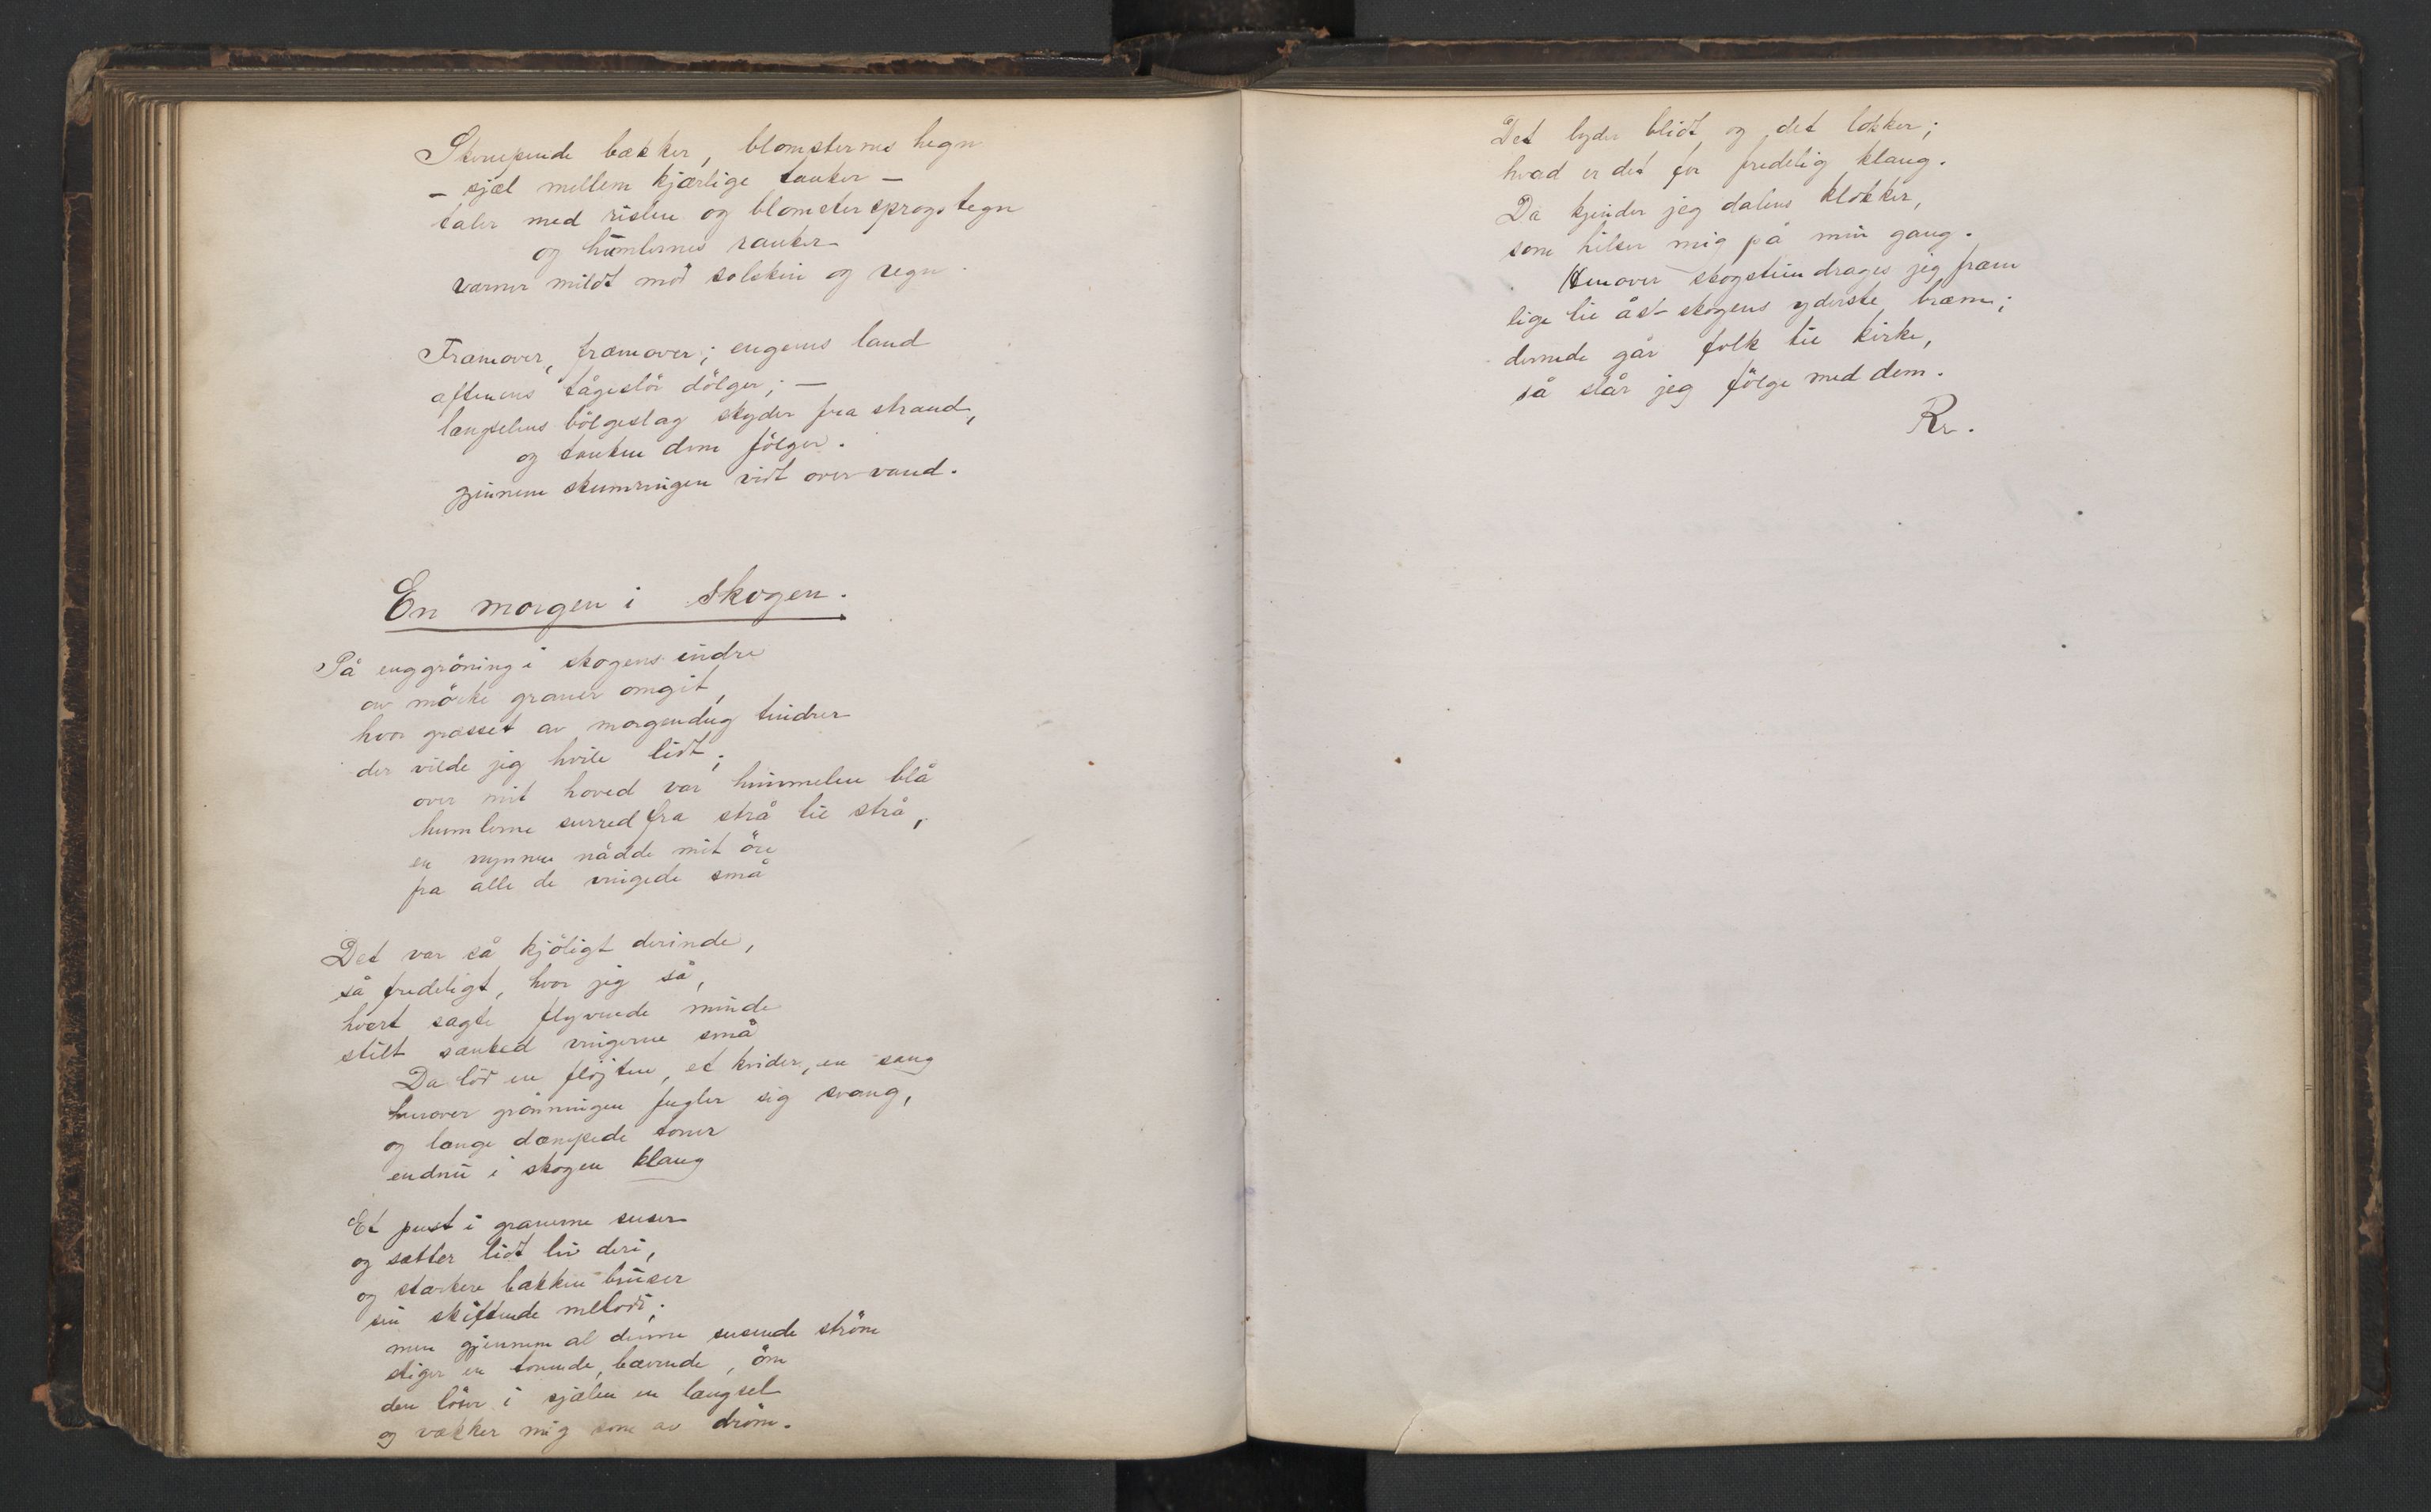 Skvulpende bækker, blomsternes hegn
– sjæl mellem kjærlige tanker –
taler med rislen og blomstersprogs tegn
og humlernes ranker
værner mildt mod solskin og regn.
Fræmover, fræmover; engenes land
aftenens tågeslör dölger; –
længselens bölgeslag skyder fra strand,
og tanken dem fölger.
gjennem skumringen vidt over vand.
En morgen i skogen.
På enggröning i skogens indre
av mörke graner omgit,
hvor græsset av morgendug tindrer
der vilde jeg hvile lidt;
over mit hoved var himmelen blå
humlerne surred fra strå til strå,
en nynnen nådde mit öre
fra alle de vingede små
Det var så kjöligt derinde,
så fredeligt, hvor jeg så,
hvert sagte flyvende minde
stilt sænked vingerne små
Da löd en fløjten, et kvider, en sang
henover grönningen fugler sig svang,
og længe dæmpede toner
endnu i skogen klang
Et pust i granerne suser
og sætter lidt liv deri,
og stærkere bækken bruser
sin skiftende melodi;
men gjennem al denne susende ström
stiger en tonende, bævende, öm
den löser i sjælen en længsel
og vækker mig som av dröm.
Det lyder blidt og det lokker;
hvad er det for fredelig klang.
Da kjender jeg dalens klokker,
som hilser mig på min gang.
Henover skogstien drages jeg fræm
lige til åst skogens yderste bræm;
dernede går folk til kirke,
så slår jeg fölge med dem.
Rr.